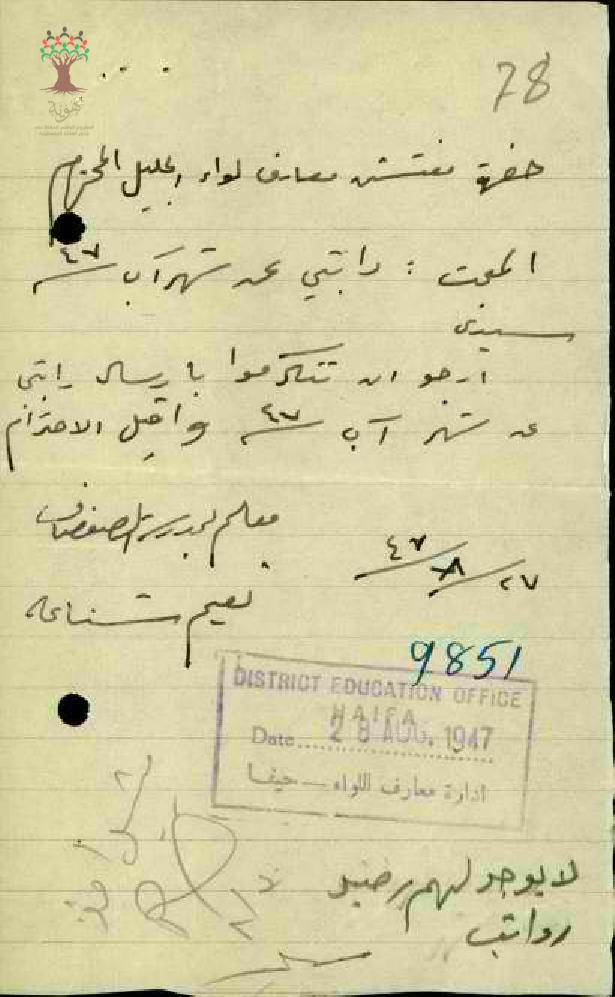 78
حضرة مفتش معارف لواء الجليل المحترم
المبحث : راتبي عن شهر آب ٤٧
سيدي
ارجو ان تتكرموا بارسال راتبي
عن شهر آب ٤٧ واقبل الاحترام
معلم مدرسة الصفصاف
٢٧/٨/٤٧
نعيم شناعه
9851
DISTRICT EDUCATION OFFICE
HAIFA
Date 28 AUG. 1947
ادارة معارف اللواء — حيفا
لا يوجد لهم رصيد
رواتب